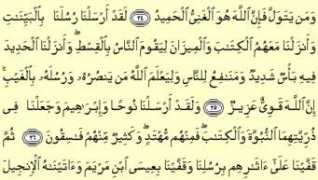 وَمَن يَتَوَلَّ فَإِنَّ ٱللَّهَ هُوَ ٱلْغَنِىُّ ٱلْحَمِيدُ ٢٤ لَقَدْ أَرْسَلْنَا رُسُلَنَا بِٱلْبَيِّنَٰتِ
وَأَنزَلْنَا مَعَهُمُ ٱلْكِتَٰبَ وَٱلْمِيزَانَ لِيَقُومَ ٱلنَّاسُ بِٱلْقِسْطِ ۖ وَأَنزَلْنَا ٱلْحَدِيدَ
فِيهِ بَأْسٌ شَدِيدٌ وَمَنَٰفِعُ لِلنَّاسِ وَلِيَعْلَمَ ٱللَّهُ مَن يَنصُرُهُۥ وَرُسُلَهُۥ بِٱلْغَيْبِ ۚ
إِنَّ ٱللَّهَ قَوِىٌّ عَزِيزٌ ٢٥ وَلَقَدْ أَرْسَلْنَا نُوحًا وَإِبْرَٰهِيمَ وَجَعَلْنَا فِى
ذُرِّيَّتِهِمَا ٱلنُّبُوَّةَ وَٱلْكِتَٰبَ ۖ فَمِنْهُم مُّهْتَدٍ ۖ وَكَثِيرٌ مِّنْهُمْ فَٰسِقُونَ ٢٦ ثُمَّ
قَفَّيْنَا عَلَىٰٓ ءَاثَٰرِهِم بِرُسُلِنَا وَقَفَّيْنَا بِعِيسَى ٱبْنِ مَرْيَمَ وَءَاتَيْنَٰهُ ٱلْإِنجِيلَ